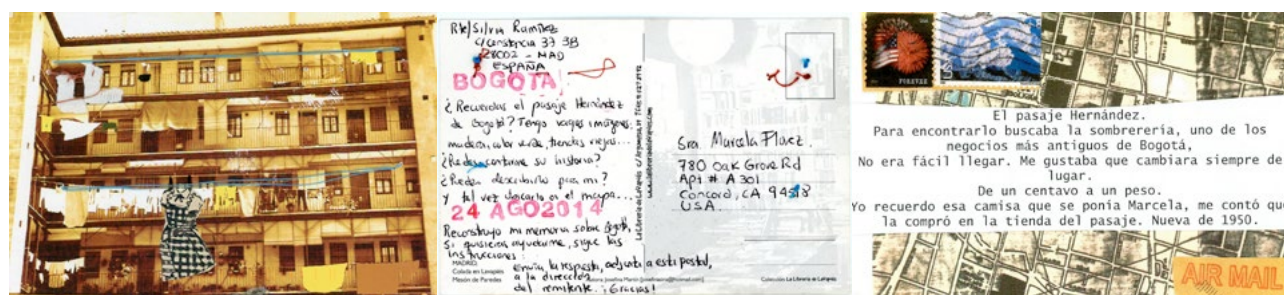 Rte/Silvia Ramírez
c/Constancia 37 3B
28002 - MAD
ESPAÑA
BOGOTA!
¿Recuerdas el pasaje Hernández
de Bogotá? Tengo vagas imágenes:
madera, color verde, tiendas viejas...
¿Puedes contarme su historia?
¿Puedes describirlo para mí?
y tal vez ubicarlo en el mapa...
24 AGO2014
Reconstruyo mi memoria sobre Bogotá,
Si quisieras ayudarme, sigue las
instrucciones:
Envía la respuesta, adjunta a esta postal,
a la dirección
del remitente. ¡Gracias!
MADRID
Colada en Lavapiés
Mesón de Paredes
www.lalibreriadelavapies.com
Colección La Librería de Lavapiés
Sra. Marcela Flórez.
780 Oak Grove Rd
Apt # A 301
Concord, CA 94518
U.S.A.
FOREVER
USA
El pasaje Hernández.
Para encontrarlo buscaba la sombrerería, uno de los
negocios más antiguos de Bogotá,
No era fácil llegar. Me gustaba que cambiara siempre de
lugar.
De un centavo a un peso.
Yo recuerdo esa camisa que se ponía Marcela, me contó que
la compró en la tienda del pasaje. Nueva de 1950.
AIR MAIL